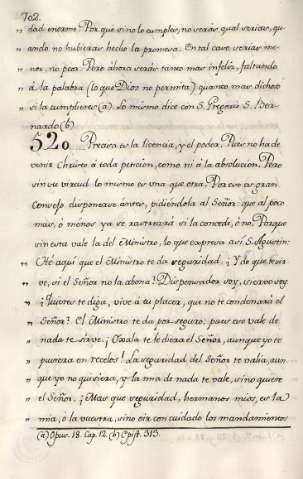 702.
„ dad enorme! Por que si no lo cumples, no serás qual serías, qu-
„ ando no hubieras hecho la promesa. En tal caso serías me-
„ nor, no peor. Pero ahora serás tanto mas infeliz, faltando
„ á la palabra (lo que Dios no permita) quanto mas dichoso
„ si la cumplieres (a). Lo mismo dice con S. Gregorio S. Ber-
nardo (b).
520. Precisa es la licencia, y el poder. Pues no ha de
venir Christo á toda peticion, como ni á la absolucion. Pero
sin esa virtud lo mismo es una que otra. Por eso es gran
Consejo disponerse ántes, pidiéndola al Señor: que al poco
mas, ó menos ya se rastreará si la concede, ó no. Porque
sin esta vale la del Ministro, lo que expresa así S. Agustin:
„ Hé aquí que el Ministro te da seguridad. ¿Y de que te sir-
„ ve, si el Señor no la abona? Dispensador soy, siervo soy.
„ ¿Quieres te diga, vive á tu placer, que no te condenará el
„ Señor? El Ministro te da por seguro: pues eso vale de
„ nada te sirve. ¡Ojala te le diera el Señor, aunque yo te
„ pusiera en recelos! La seguridad del Señor te valia, aun-
„ que yo no quisiera, y la mia de nada te vale, si no quiere
„ el Señor. ¿Mas que seguridad, hermanos mios, es la
„ mia, ó la vuestra, sino oir con cuidado los mandamientos
(a) Opus. 18. Cap. 12. (b) Epist. 313.